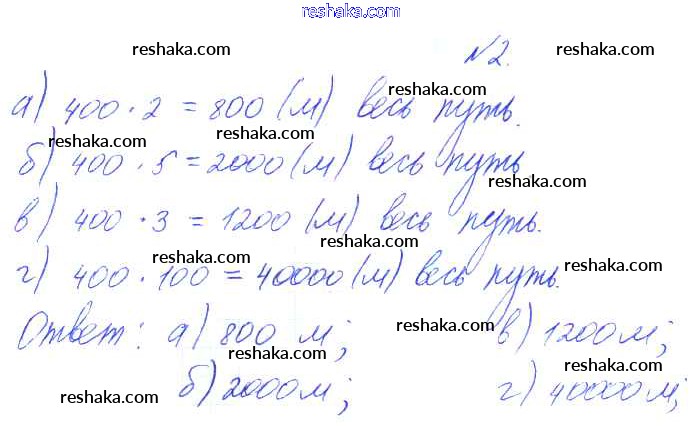 www.reshaka.com
reshaka.com №2. reshaka.com
reshaka.com
а) 400 · 2 = 800 (м) весь путь.
reshaka.com reshaka.com
б) 400 · 5 = 2000 (м) весь путь
reshaka.com
reshaka.com
в) 400 · 3 = 1200 (м) весь путь.
reshaka.com reshaka.com
reshaka.com
г) 400 · 100 = 40000 (м) весь путь.
reshaka.com
Ответ: а) 800 м; в) 1200 м;
reshaka.com
reshaka.com
б) 2000 м; г) 40000 м;
reshaka.com reshaka.com
reshaka.com